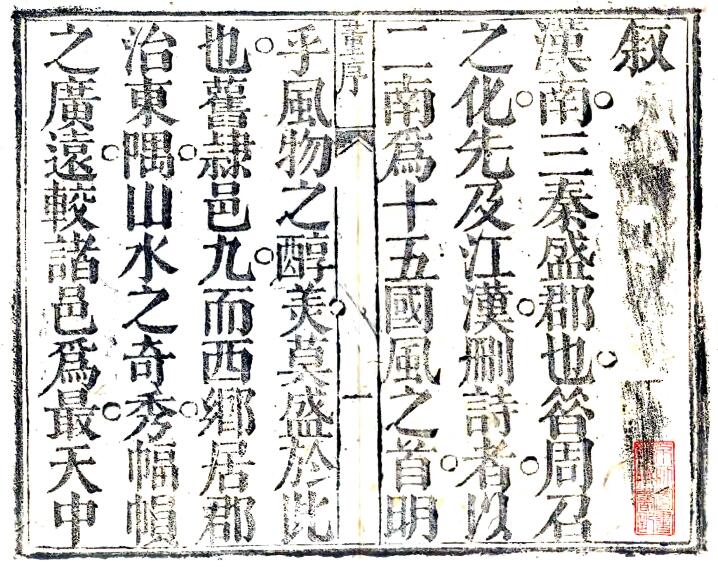 叙
漢南三秦盛郡也㫺周召
之化先及江漢刪詩者以
二南爲十五國風之首明
董序
一
乎風物之醇美莫盛於此
也舊隷邑九而西鄉居郡
治東隅山水之奇秀幅幀
之廣遠較諸邑爲最天中